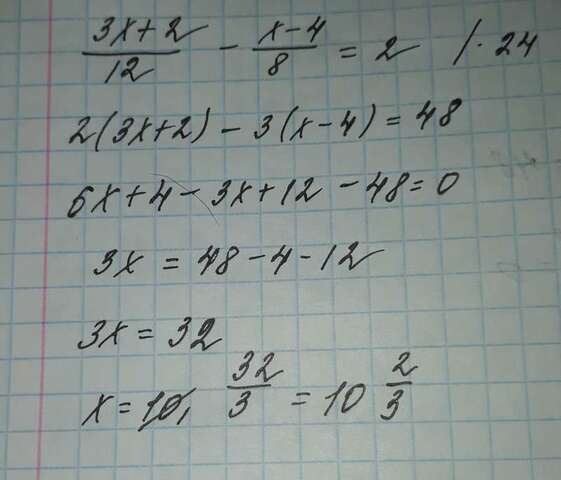 (3x+2)/12 - (x-4)/8 = 2 /·24
2(3x+2) - 3(x-4) = 48
6x+4-3x+12-48=0
3x = 48-4-12
3x = 32
x = 10, 32/3 = 10 2/3